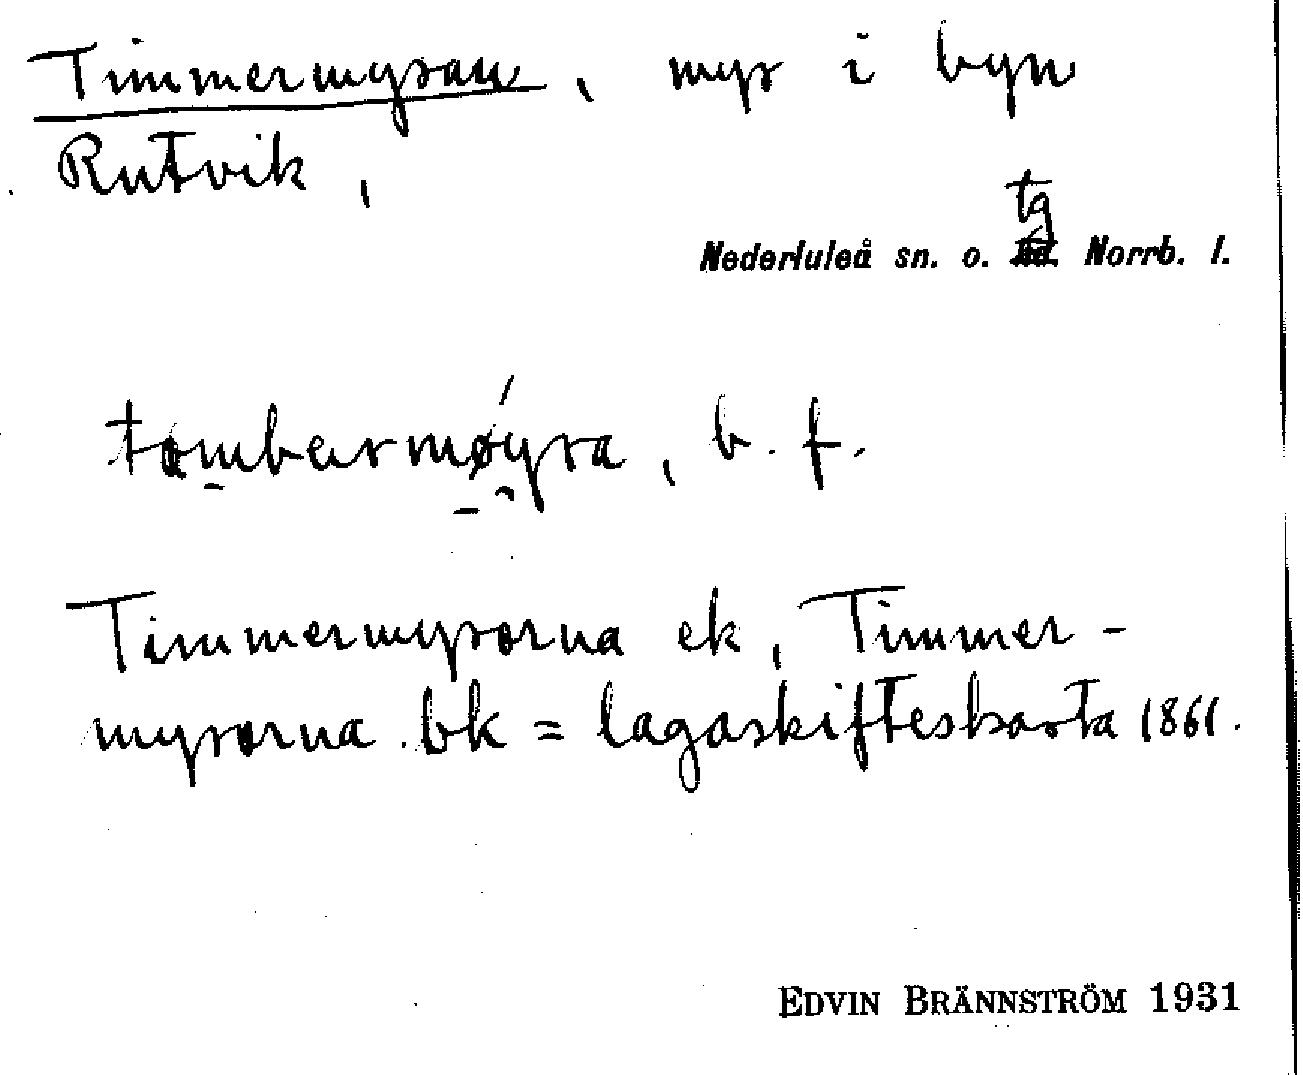 Timmermyran, myr i byn
Rutvik,
tg
Nederluleå sn. o. Norrb. l.
tømbermøyra, b. f.
Timmermyrorna ek, Timmer-
myrorna bk = lagaskifteskarta 1861.
EDVIN BRÄNNSTRÖM 1931